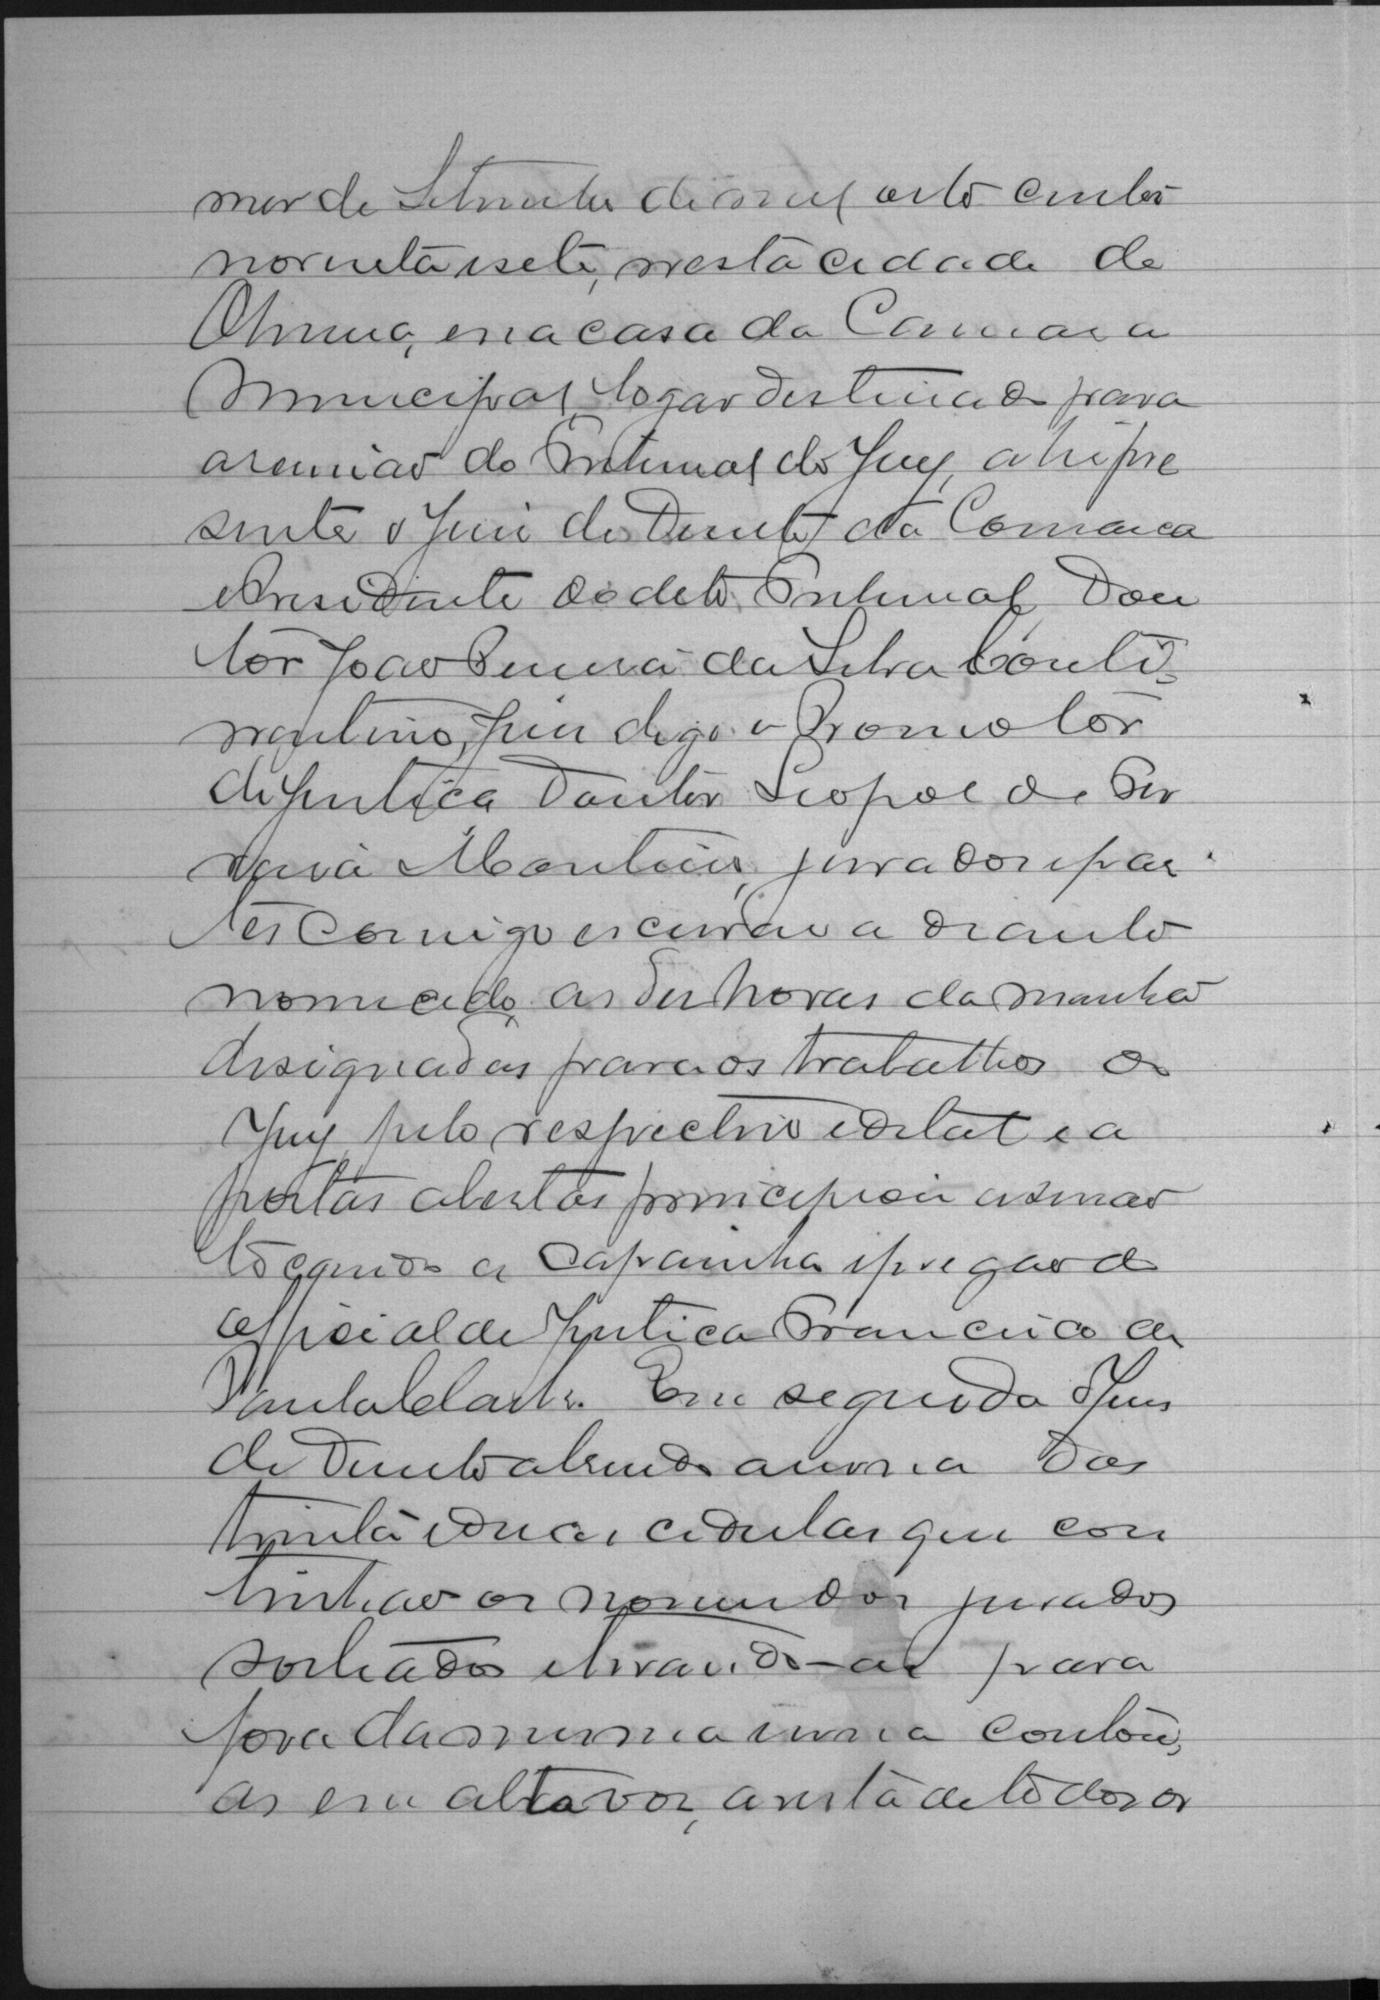 mes de Setembro de mil oito centos
noventa e sete, nesta cidade de
Olinda, em a casa da Camara
Municipal, logar destinado para
a reunião do Tribunal do Jury, ahi pre
sente o Juiz de Direito da Comarca
e Presidente do dito Tribunal, Dou
tor João da Silva
digo o Promotor
de Justiça Doutor Leopoldo
jurados e par
tes comigo escrivão a diante
nomeado, as dez horas da manhã
designadas para os trabalhos do
Jury, pelo respectivo edital e a
portas abertas principiou a sessão
tocando a campainha e pregão do
official de Justiça Francisco de
Paula Em seguida o Juiz
de Direito abrindo a urna das
trinta e duas cedulas que con
tinhão os nomes dos jurados
sorteados e tirando-as para
fora da mesma urna contou,
as em alta voz, a vista de todos os